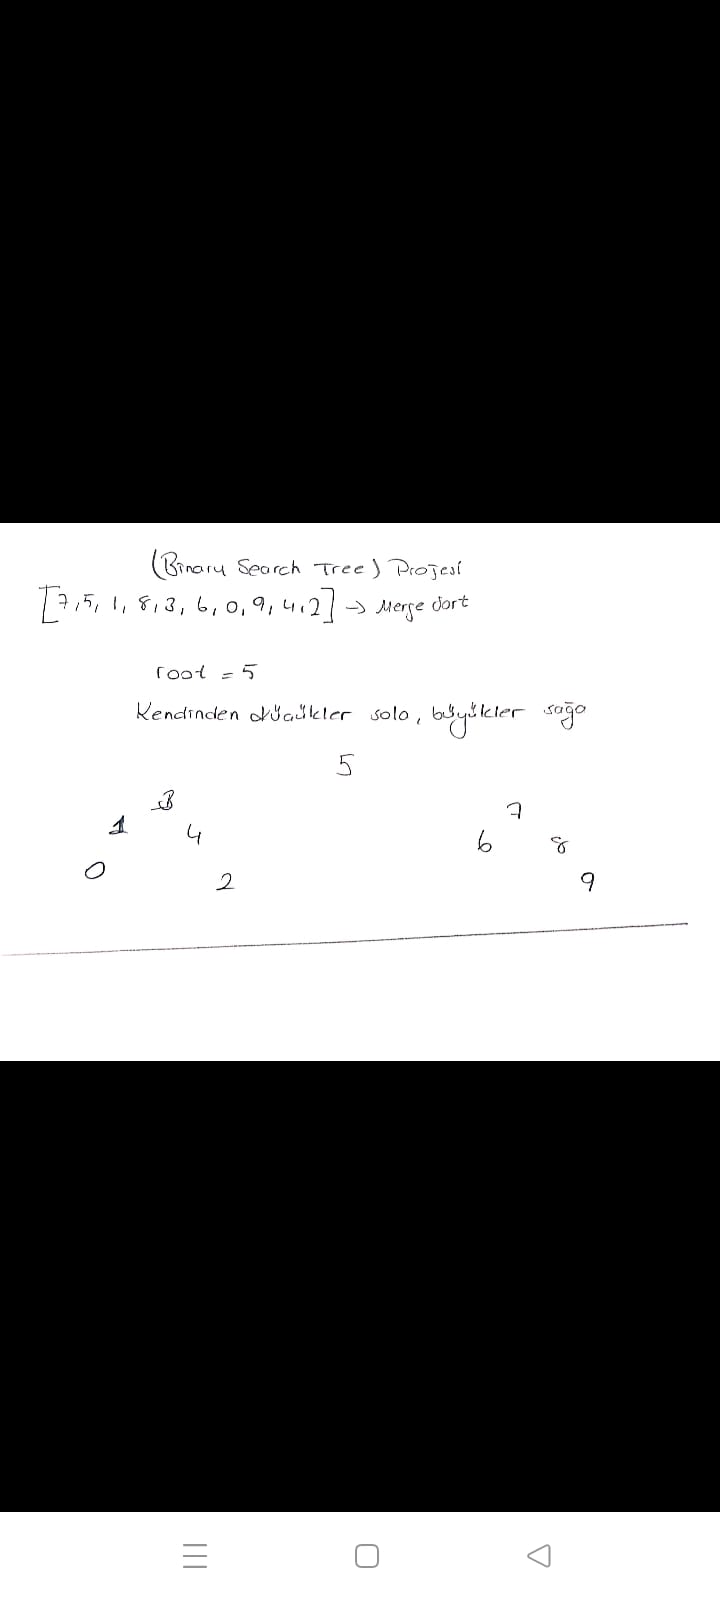 (Binary Search Tree) Projesi
[7,5, 1, 8,3, 6, 0, 9, 4,2] → Merge Sort
root = 5
Kendinden küçükler sola, büyükler sağa
5
3 7
1 4 6 8
0 2 9